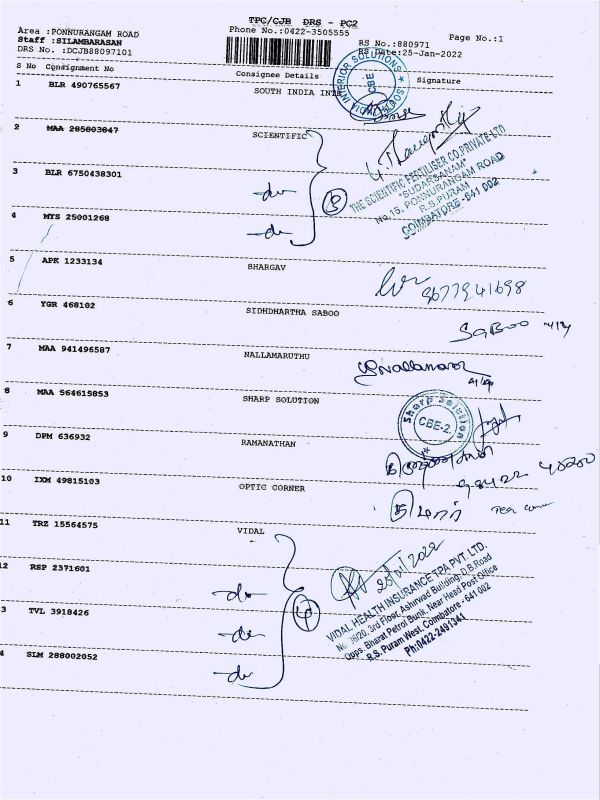 TPC/CJB DRS - PC2
Area :PONNURANGAM ROAD
Phone No.:0422-3505555
Page No.:1
Staff :SILAMBARASAN
RS No.:880971
DRS No. :DCJB88097101
RS Date:25-Jan-2022
S No Consignment No
Consignee Details
Signature
1 BLR 490765567
SOUTH INDIA INTE
SOUTH INDIA INTERIOR SOLUTIONS
CBE
2 MAA 285803847
SCIENTIFIC
3 BLR 6750438301
-do-
3
THE SCIENTIFIC FERTILISER CO.PRIVATE LTD
"SUDARSANAM"
No.15, PONNURANGAM ROAD
R.S.PURAM
COIMBATORE - 641 002
4 MYS 25001268
-do-
5 APK 1233134
BHARGAV
9677941698
6 YGR 468102
SIDHDHARTHA SABOO
SABOO
7 MAA 941496587
NALLAMARUTHU
8 MAA 564615853
SHARP SOLUTION
Sharp Solution
CBE-2
9 DPM 636932
RAMANATHAN
10 IXM 49815103
OPTIC CORNER
11 TRZ 15564575
VIDAL
25/01/2022
2 RSP 2371601
-do-
4
VIDAL HEALTH INSURANCE TPA PVT. LTD.
No. 18/20, 3rd Floor, Ashirvad Building, D.B.Road
Opps. Bharat Petrol Bunk, Near Head Post Office
R.S. Puram West, Coimbatore - 641 002
Ph:0422-2491341
3 TVL 3918426
-do-
4 SLM 288002052
-do-